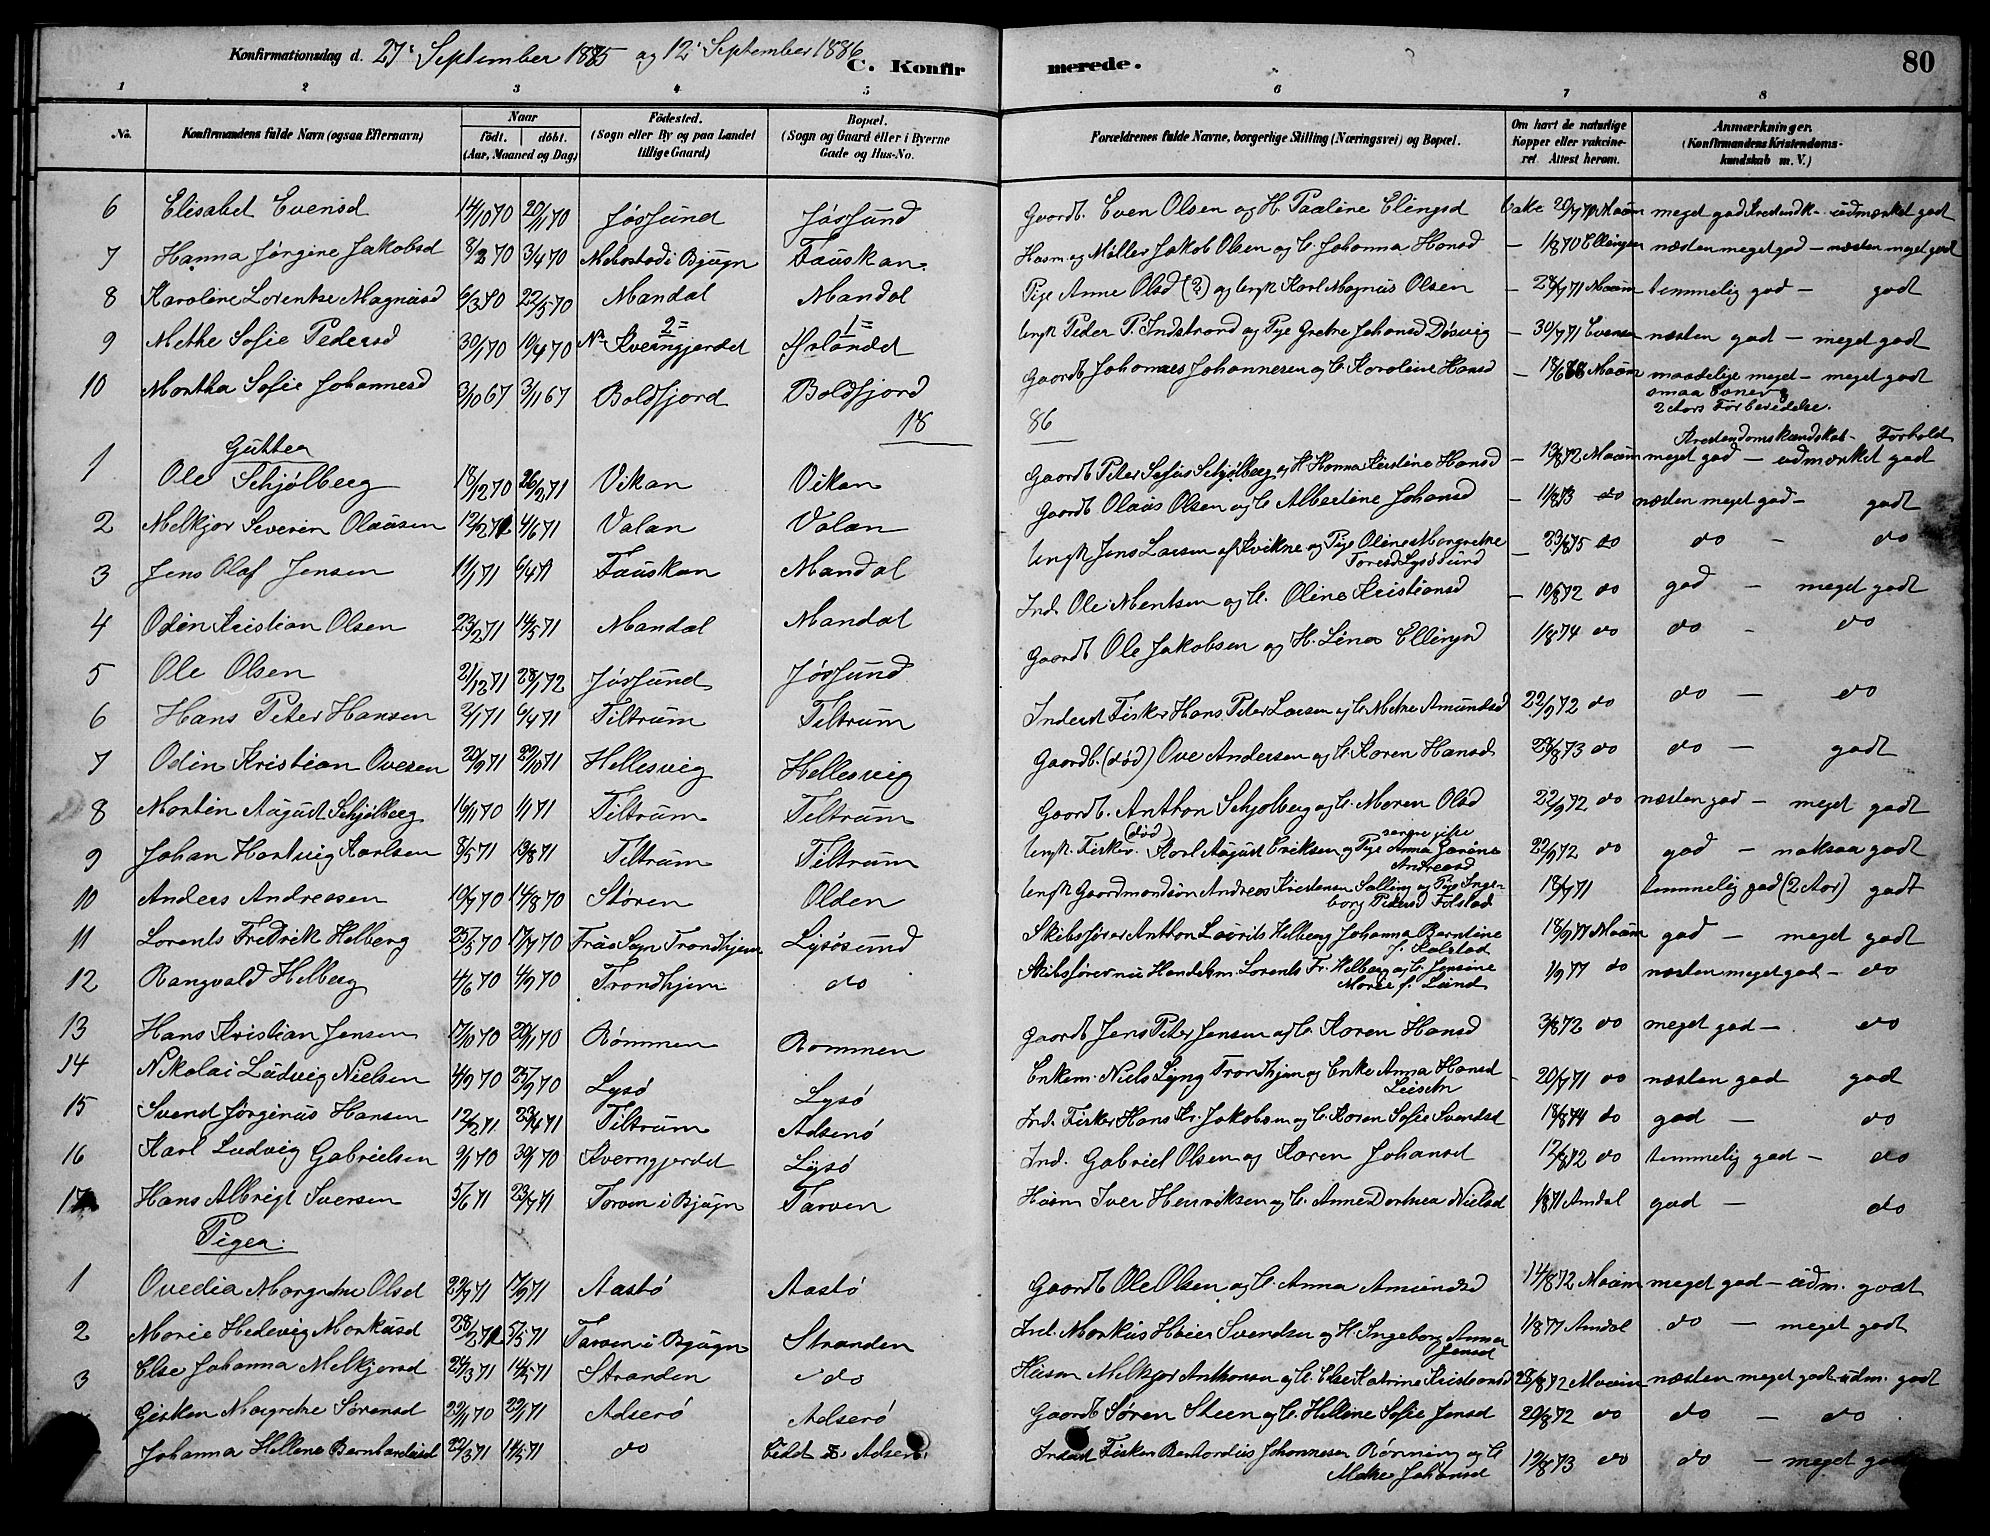 Konfirmationsdag d. 27' September 1885 og 12' September 1886
C. Konfirmerede. 80
1 2 3 4 5 6 7 8
No. Konfirmandens fulde Navn (ogsaa Efternavn) Naar født. døbt. (Aar, Maaned og Dag) Fødested. (Sogn eller By og paa Landet tillige Gaard) Bopæl. (Sogn og Gaard eller i Byerne Gade og Hus-No. Forældrenes fulde Navne, borgerlige Stilling (Næringsvei) og Bopæl. Om havt de naturlige Kopper eller vakcineret. Attest herom. Anmærkninger. (Konfirmandens Kristendomskundskab m. V.)
6 Elisabet Evensd 14/10 70 20/11 70 Jøssund Jøssund Gaardb. Even Olsen og H. Pauline Elingsd 20/7 71 Maain meget god Kristendk. - udmærket god
7 Hanna Jørgine Jakobsd 8/2 70 3/4 70 Mebostad i Bjugn Fauskan Husm og Møller Jakob Olsen og H. Johanna Hansd - 1/8 70 Ellingsen næsten meget god - næsten meget godt
8 Karoline Lorentse Magnusd 6/3 70 22/5 70 Mandal Mandal Pige Anne Olsd (?) og Ungk Karl Magnus Olsen - 28/7 71 Maain temmelig god - godt
9 Methe Sofie Pedersd 30/1 70 10/4 70 Nr Kverngjerdet 2= Ørlandet 1= Ungk Peder P. Indstrand og Pige Grethe Johansd Døsvig - 30/7 71 Evensen næsten god - meget godt
10 Martha Sofie Johannesd 3/10 67 3/11 67 Boldfjord Boldfjord Gaardb Johannes Johannesen og H. Karoline Hansd - 18/6 68 Maain maadelige meget - meget godt
smaa Evner &
2 Aars Forberedelse.
18 86
Gutter Kristendomskundskab - Forhold
1 Ole Schjølberg 18/12 70 26/2 71 Vikan Vikan Gaardb Peter Sofus Schjølberg og H. Hanna Kirstine Hansd - 13/8 72 Maain meget god - udmærket god
2 Melkjor Severin Olausen 12/2 71 4/6 71 Valan Valan Gaardb Olaus Olsen og H. Albertine Johansd - 11/8 73 do næsten meget god - godt
3 Jens Olaf Jensen 11/1 71 6/4 71 Fauskan Mandal Ungk Jens Larsen af Kvikne og Pige Oline Margrethe
Toresd Lysøsund - 23/8 75 do do - do
4 Odin Kristian Olsen 23/2 71 14/5 71 Mandal Mandal Ind. Ole Mentsen og H. Oline Kristiansd - 10/8 72 do god - meget godt
5 Ole Olsen 21/12 71 28/1 72 Jøssund Jøssund Gaardb Ole Jakobsen og H. Lina Ellingsd 1/8 74 do do - do
6 Hans Peter Hansen 2/1 71 6/4 71 Tiltrum Tiltrum Inderst Fisker Hans Peter Larsen og H. Methe Amundsd 22/9 72 do do - do
7 Odin Kristian Ovesen 20/9 71 22/10 71 Hellesvig Hellesvig Gaardb. (død) Ove Andersen og H. Karen Hansd 28/8 73 do do - godt
8 Martin August Schjølberg 16/11 70 1/1 71 Tiltrum Tiltrum Gaardb. Anthon Schjølberg og H. Maren Olsd 22/9 72 do næsten god - meget godt
9 Johan Hartvig Karlsen 8/5 71 13/8 71 Tiltrum Tiltrum Ungk. Fisker (død) Karl August Eriksen og Pige Anna Gurine
Andreasd 22/9 72 do god - noksaa godt
10 Anders Andreasen 10/7 70 14/8 70 Støren Olden Ungk Gaardmandsøn Andreas Kristensen Salling og Pige Ingeborg Pedersd Folstad 18/7 71 temmelig god (2 Aar) godt
11 Lorents Fredrik Helberg 25/5 70 17/7 70 Frue Sogn Trondhjem Lysøsund Skibsfører Anthon Laurits Helberg Johanna Berntine
f. Kalstad 18/9 77 Maain god - meget godt
12 Rangvald Helberg 4/6 70 4/9 70 Trondhjem do Skibsfører nu Handelsm. Lorents Fr. Helberg og H. Jensine
Marie f. Lund 1/9 77 do næsten meget god - do
13 Hans Kristian Jensen 17/10 70 20/11 70 Rømmen Rommen Gaardb Jens Peter Jensen og H. Karen Hansd 3/8 72 do meget god - do
14 Nikolai Ludvig Nielsen 4/9 70 25/9 70 Lysø Lysø Enkem. Niels Lyng Trondhjem og Enke Anna Hansd 20/7 71 do næsten god god
15 Svend Jørginus Hansen 12/2 71 23/4 71 Tiltrum Adserø Ind. Fisker Hans Kr. Jakobsen og H. Karen Sofie Svendsd 18/8 74 do god - do
16 Karl Ludvig Gabrielsen 9/1 70 30/1 70 Kverngjerdet Lysø Ind. Gabriel Olsen og Karen Johansd 12/8 72 do temmelig god - do
17 Hans Albrigt Iversen 5/6 71 23/7 71 Tarven i Bjugn Tarven Husm Iver Henriksen og H. Anne Dorthea Nielsd 1/8 71 Amdal god - do
Piger.
1 Ovedia Margrethe Olsd 22/7 71 17/9 71 Aastø Aastø Gaardb Ole Olsen og H. Anna Amundsd 14/8 72 Maain meget god - udm. godt
2 Marie Hedevig Markusd 28/2 71 5/5 71 Tarven i Bjugn Stranden Ind. Markus Høier Svendsen og H. Ingeborg Anna
Jensd 1/8 77 Amdal do - meget godt
3 Else Johanna Melkjorsd 24/3 71 14/5 71 Stranden do Husm Melkjor Anthonsen og H. Else Katrine Kristiansd 28/8 72 Maain næsten meget godt udm. godt
Gisken Margrethe Sørensd 22/11 70 22/1 71 Adserø Adserø Gaardb Søren Steen og H. Helline Sofie Jensd 20/8 72 do do - do
Johanna Helline Bernhardusd 22/3 71 14/5 71 do Eidet Adserø Inderst Fisker Bernhardus Johannesen Rønning og H.
Methe Johansd 12/8 73 do do - meget godt